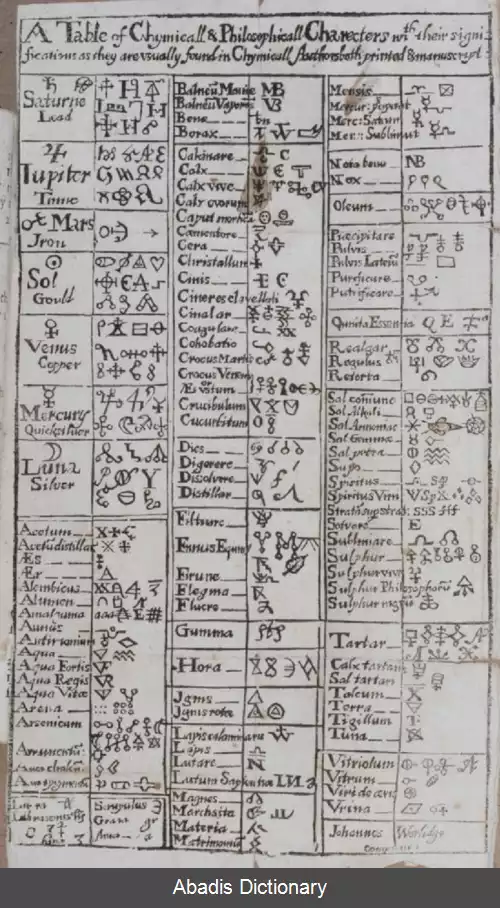 A Table of Chymicall & Philosophicall Charecters wth their signi-
fications as they are usually found in Chymicall Authors both printed & manuscript
Saturne
Lead
Jupiter
Tinne
Mars
Jron
Sol
Gould
Venus
Copper
Mercury
Quicksilver
Luna
Silver
Acetum
Æs
Aer
Alembicus
Alumen
Amalgama
Antimonium
Aqua
Aqua Fortis
Aqua Regis
Aqua Vitæ
Arena
Arsenicum
Balneū Mariæ MB
Balneū Vaporis VB
Bene
Borax
Calcinare
Calx
Calx vive
Calx ovorum
Caput mortuum
Cæmentare
Cera
Christallum
Cinis
Cineres clavellati
Cinabar
Coagulare
Cohobatio
Crocus Martis
Crocus Veneris
Æs ustum
Crucibulum
Cucurbitum
Dies
Digerere
Dissolvere
Distillar
Filtrare
Fimus Equinus
Flegma
Fluere
Gumma
Hora
Jgnis
Jgnis rotæ
Lapis calaminaris
Lapis
Lutare
Lutum Sapientiæ
Magnes
Marchasita
Materia
Matrimonium
Mensis
Nota bene NB
Nox
Oleum
Præcipitare
Pulvis
Pulvis Laterum
Purificare
Putrificare
Quinta Essentia
Realgar
Regulus
Retorta
Sal comune
Sal Alkali
Sal Armoniac
Sal Gemmæ
Sal petra
Sapo
Spiritus
Spiritus Vini
Solvere
Sublimare
Sulphur
Sulphur vivum
Sulphur Philosophorū
Sulphur nigrū
Tartar
Calx tartari
Sal tartari
Talcum
Terra
Tigillum
Tutia
Vitriolum
Vitrum
Viride æris
Vrina
Johannes Worlidge
Abadis Dictionary